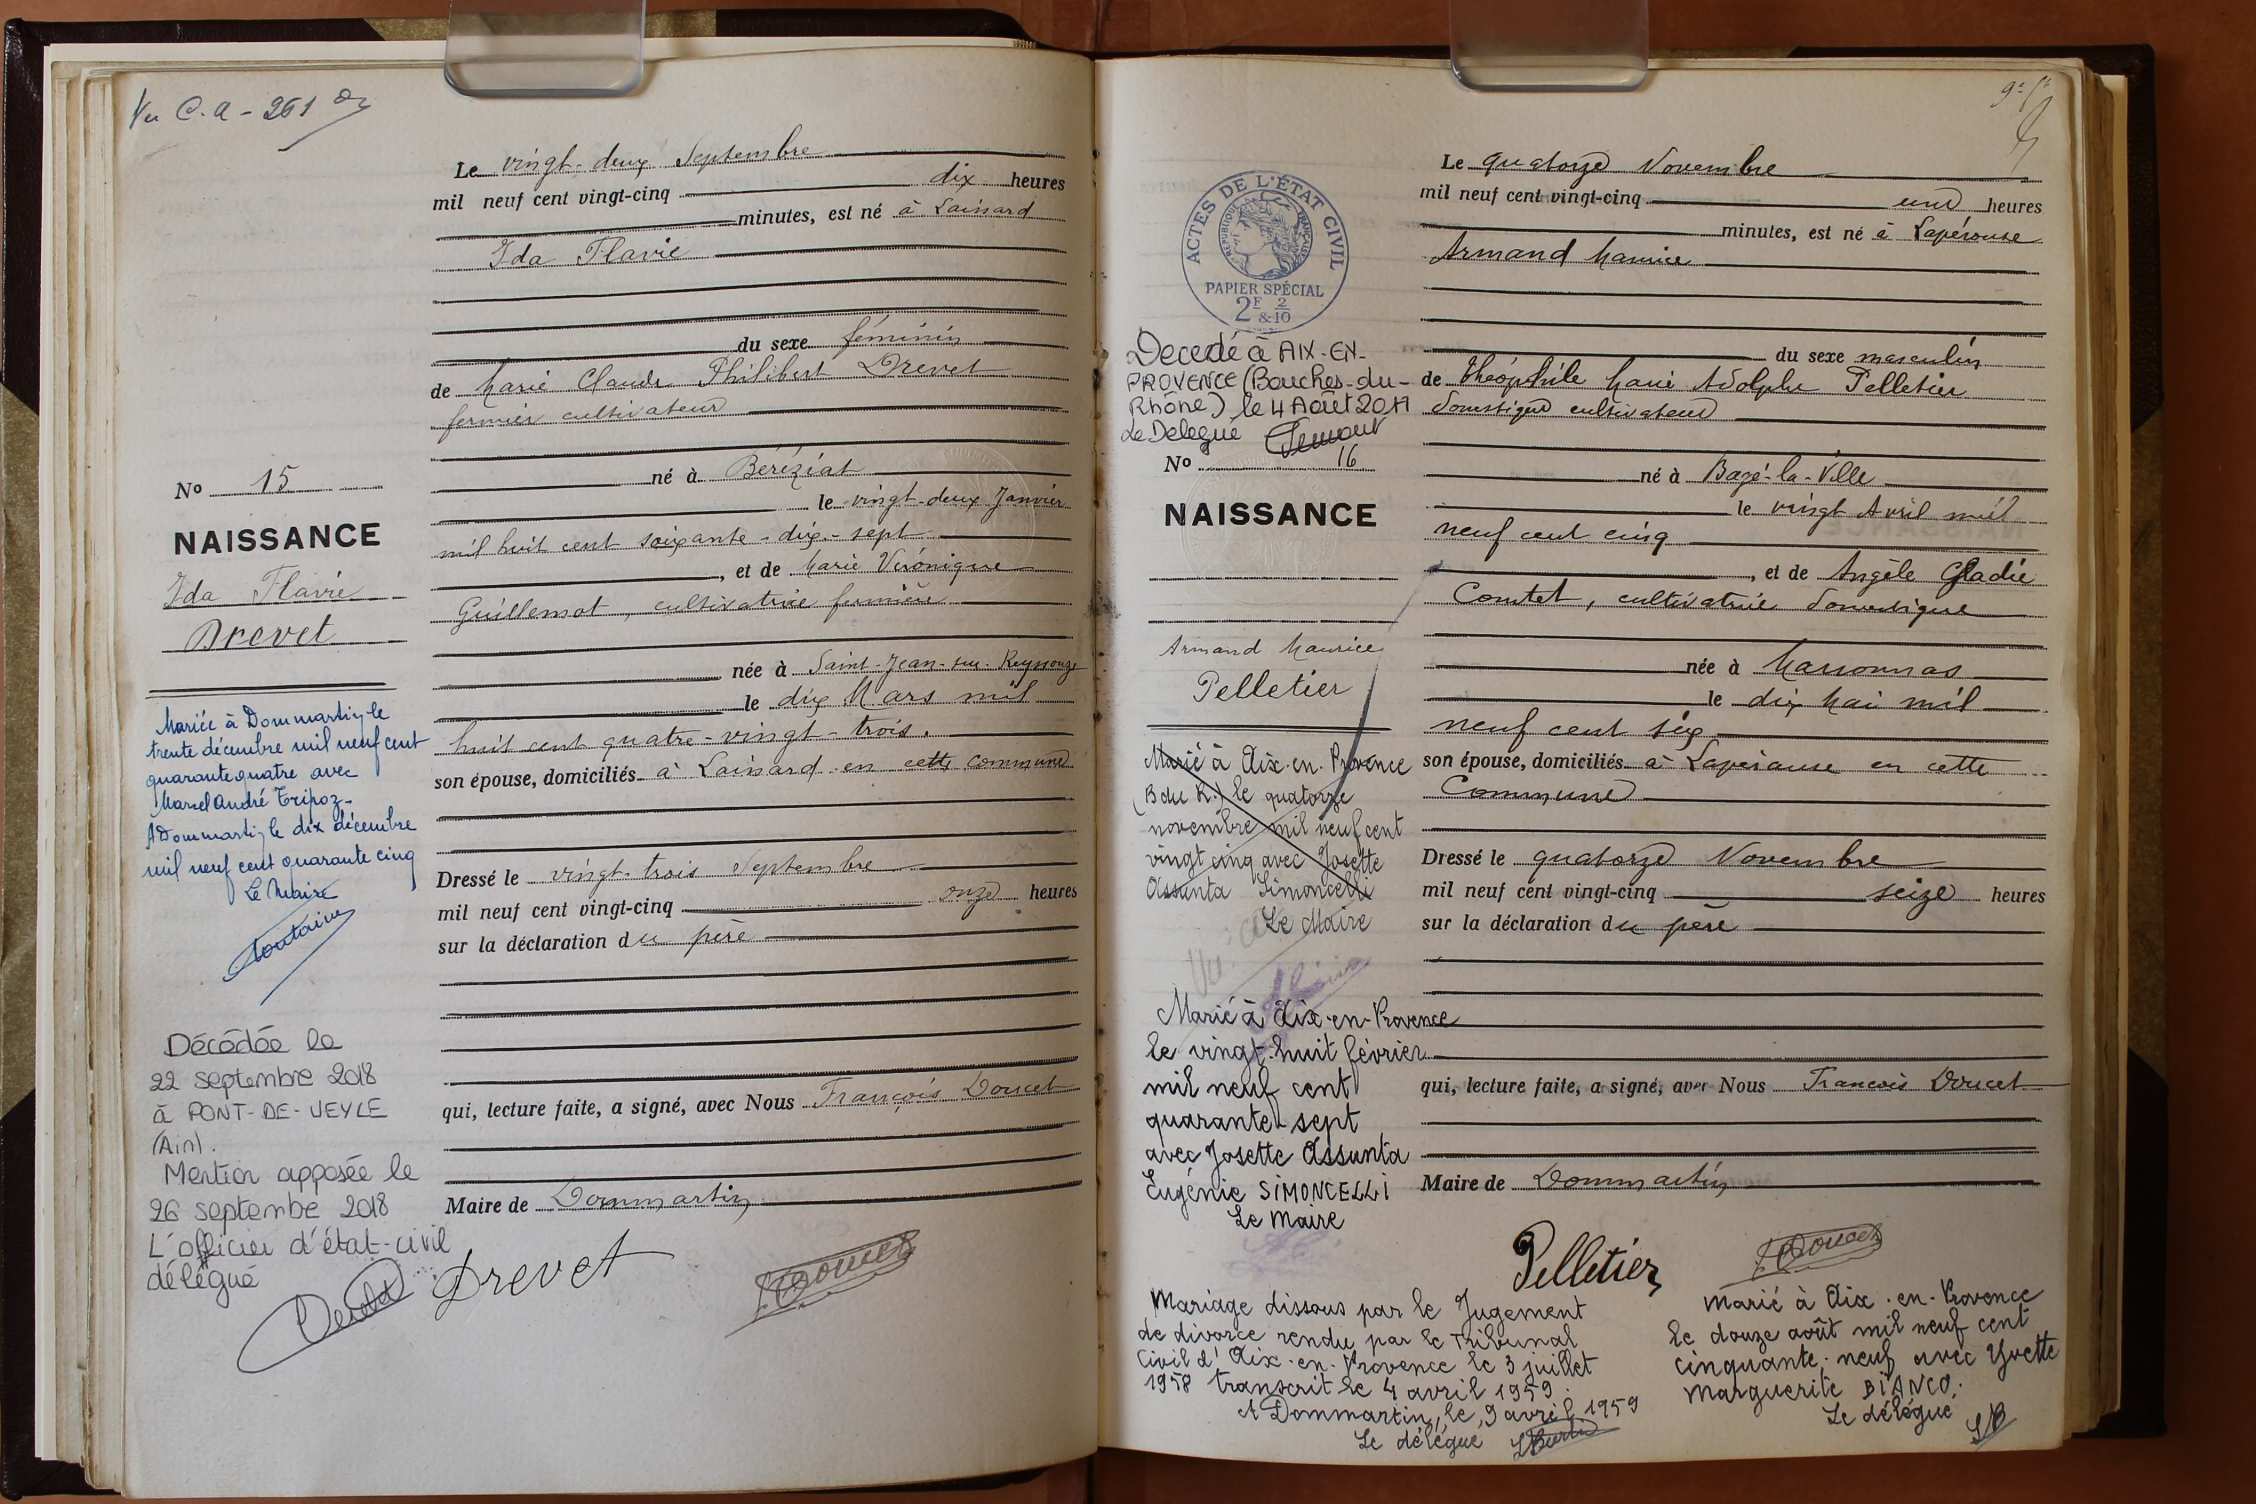 Vu C.A - 261
Le vingt-deux Septembre
mil neuf cent vingt-cinq dix heures
minutes, est né à Loinard
Ida Flavie
du sexe féminin
de Marie Claude Philibert Drevet
fermier cultivateur
né à Béréziat
le vingt-deux Janvier
mil huit cent soixante-dix-sept
, et de Marie Véronique
Guillemot, cultivatrice fermière
née à Saint-Jean-sur-Reyssouze
le dix Mars mil
huit cent quatre-vingt-trois.
son épouse, domiciliés à Loinard en cette commune
Dressé le vingt-trois Septembre
mil neuf cent vingt-cinq onze heures
sur la déclaration du père
qui, lecture faite, a signé, avec Nous François Doucet
Maire de Dommartin
Drevet
Doucet
No 15
NAISSANCE
Ida Flavie
Drevet
Mariée à Dommartin le
trente décembre mil neuf cent
quarante quatre avec
Marcel André Tripoz
A Dommartin le dix décembre
mil neuf cent quarante cinq
Le Maire
Décédée le
22 septembre 2018
à PONT-DE-VEYLE
(Ain).
Mention apposée le
26 septembre 2018
L'officier d'état-civil
délégué
Le quatorze Novembre
mil neuf cent vingt-cinq une heures
minutes, est né à Lapérouse
Armand Maurice
du sexe masculin
de Théophile Marie Adolphe Pelletier
domestique cultivateur
né à Bagé-la-Ville
le vingt Avril mil
neuf cent cinq
, et de Angèle Cladie
Comtet, cultivatrice domestique
née à Marsonnas
le dix Mai mil
neuf cent six
son épouse, domiciliés à Lapérouse en cette
Commune
Dressé le quatorze Novembre
mil neuf cent vingt-cinq seize heures
sur la déclaration du père
qui, lecture faite, a signé, avec Nous François Doucet
Maire de Dommartin
Pelletier
Doucet
ACTES DE L'ÉTAT CIVIL
RÉPUBLIQUE FRANÇAISE
PAPIER SPÉCIAL
2F & 2/10
Decedé à AIX-EN-
PROVENCE (Bouches-du-
Rhône) le 4 Août 2011
Le Delegué
No 16
NAISSANCE
Armand Maurice
Pelletier
Marié à Aix-en-Provence
(B du R.) le quatorze
novembre mil neuf cent
vingt cinq avec Josette
Assunta Simoncelli
Le Maire
Marié à Aix-en-Provence
le vingt-huit février
mil neuf cent
quarante sept
avec Josette Assunta
Eugénie SIMONCELLI
Le Maire
Mariage dissous par le Jugement
de divorce rendu par le Tribunal
Civil d'Aix-en-Provence le 3 juillet
1958 transcrit le 4 avril 1959.
A Dommartin, le 9 avril 1959
Le délégué
Marié à Aix-en-Provence
le douze août mil neuf cent
cinquante-neuf avec Yvette
Marguerite BIANCO.
Le délégué